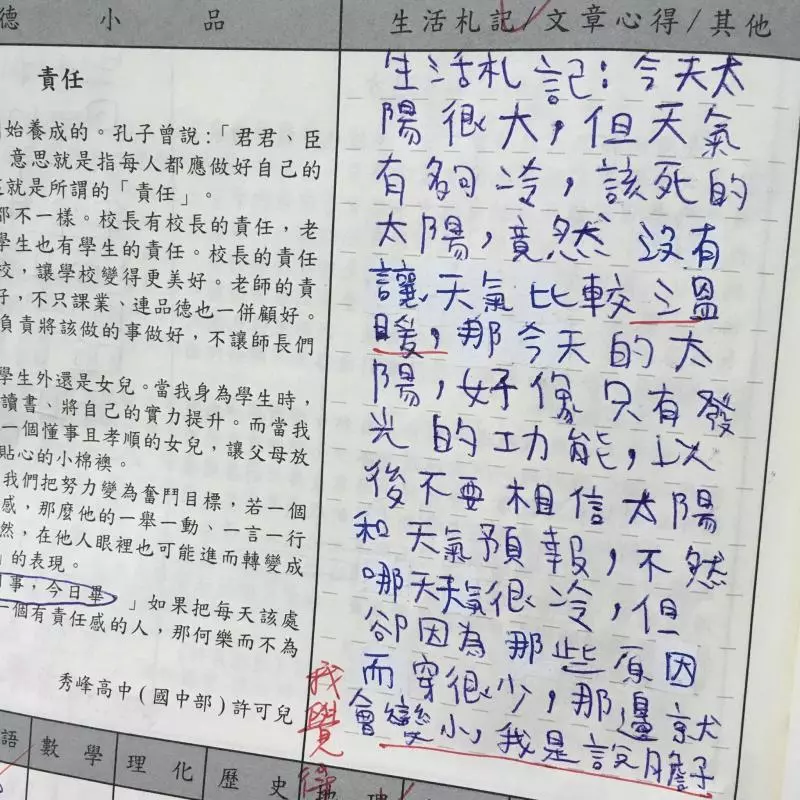 德小品
生活札記/文章心得/其他
責任
始養成的。孔子曾說:「君君、臣
意思就是指每人都應做好自己的
就是所謂的「責任」。
都不一樣。校長有校長的責任,老
學生也有學生的責任。校長的責任
校,讓學校變得更美好。老師的責
好,不只課業、連品德也一併顧好。
負責將該做的事做好,不讓師長們
學生外還是女兒。當我身為學生時,
讀書、將自己的實力提升。而當我
一個懂事且孝順的女兒,讓父母放
貼心的小棉襖。
我們把努力變為奮鬥目標,若一個
感,那麼他的一舉一動、一言一行
然,在他人眼裡也可能進而轉變成
的表現。
事,今日畢」如果把每天該處
一個有責任感的人,那何樂而不為
秀峰高中(國中部)許可兒
語 數學 理化 歷史 地理
生活札記:今天太
陽很大,但天氣
有夠冷,該死的
太陽,竟然沒有
讓天氣比較溫
暖,那今天的太
陽,好像只有發
光的功能,以
後不要相信太陽
和天氣預報,不然
哪天天氣很冷,但
卻因為那些原因
而穿很少,那邊就
會變小,我是說膽子
我覺得